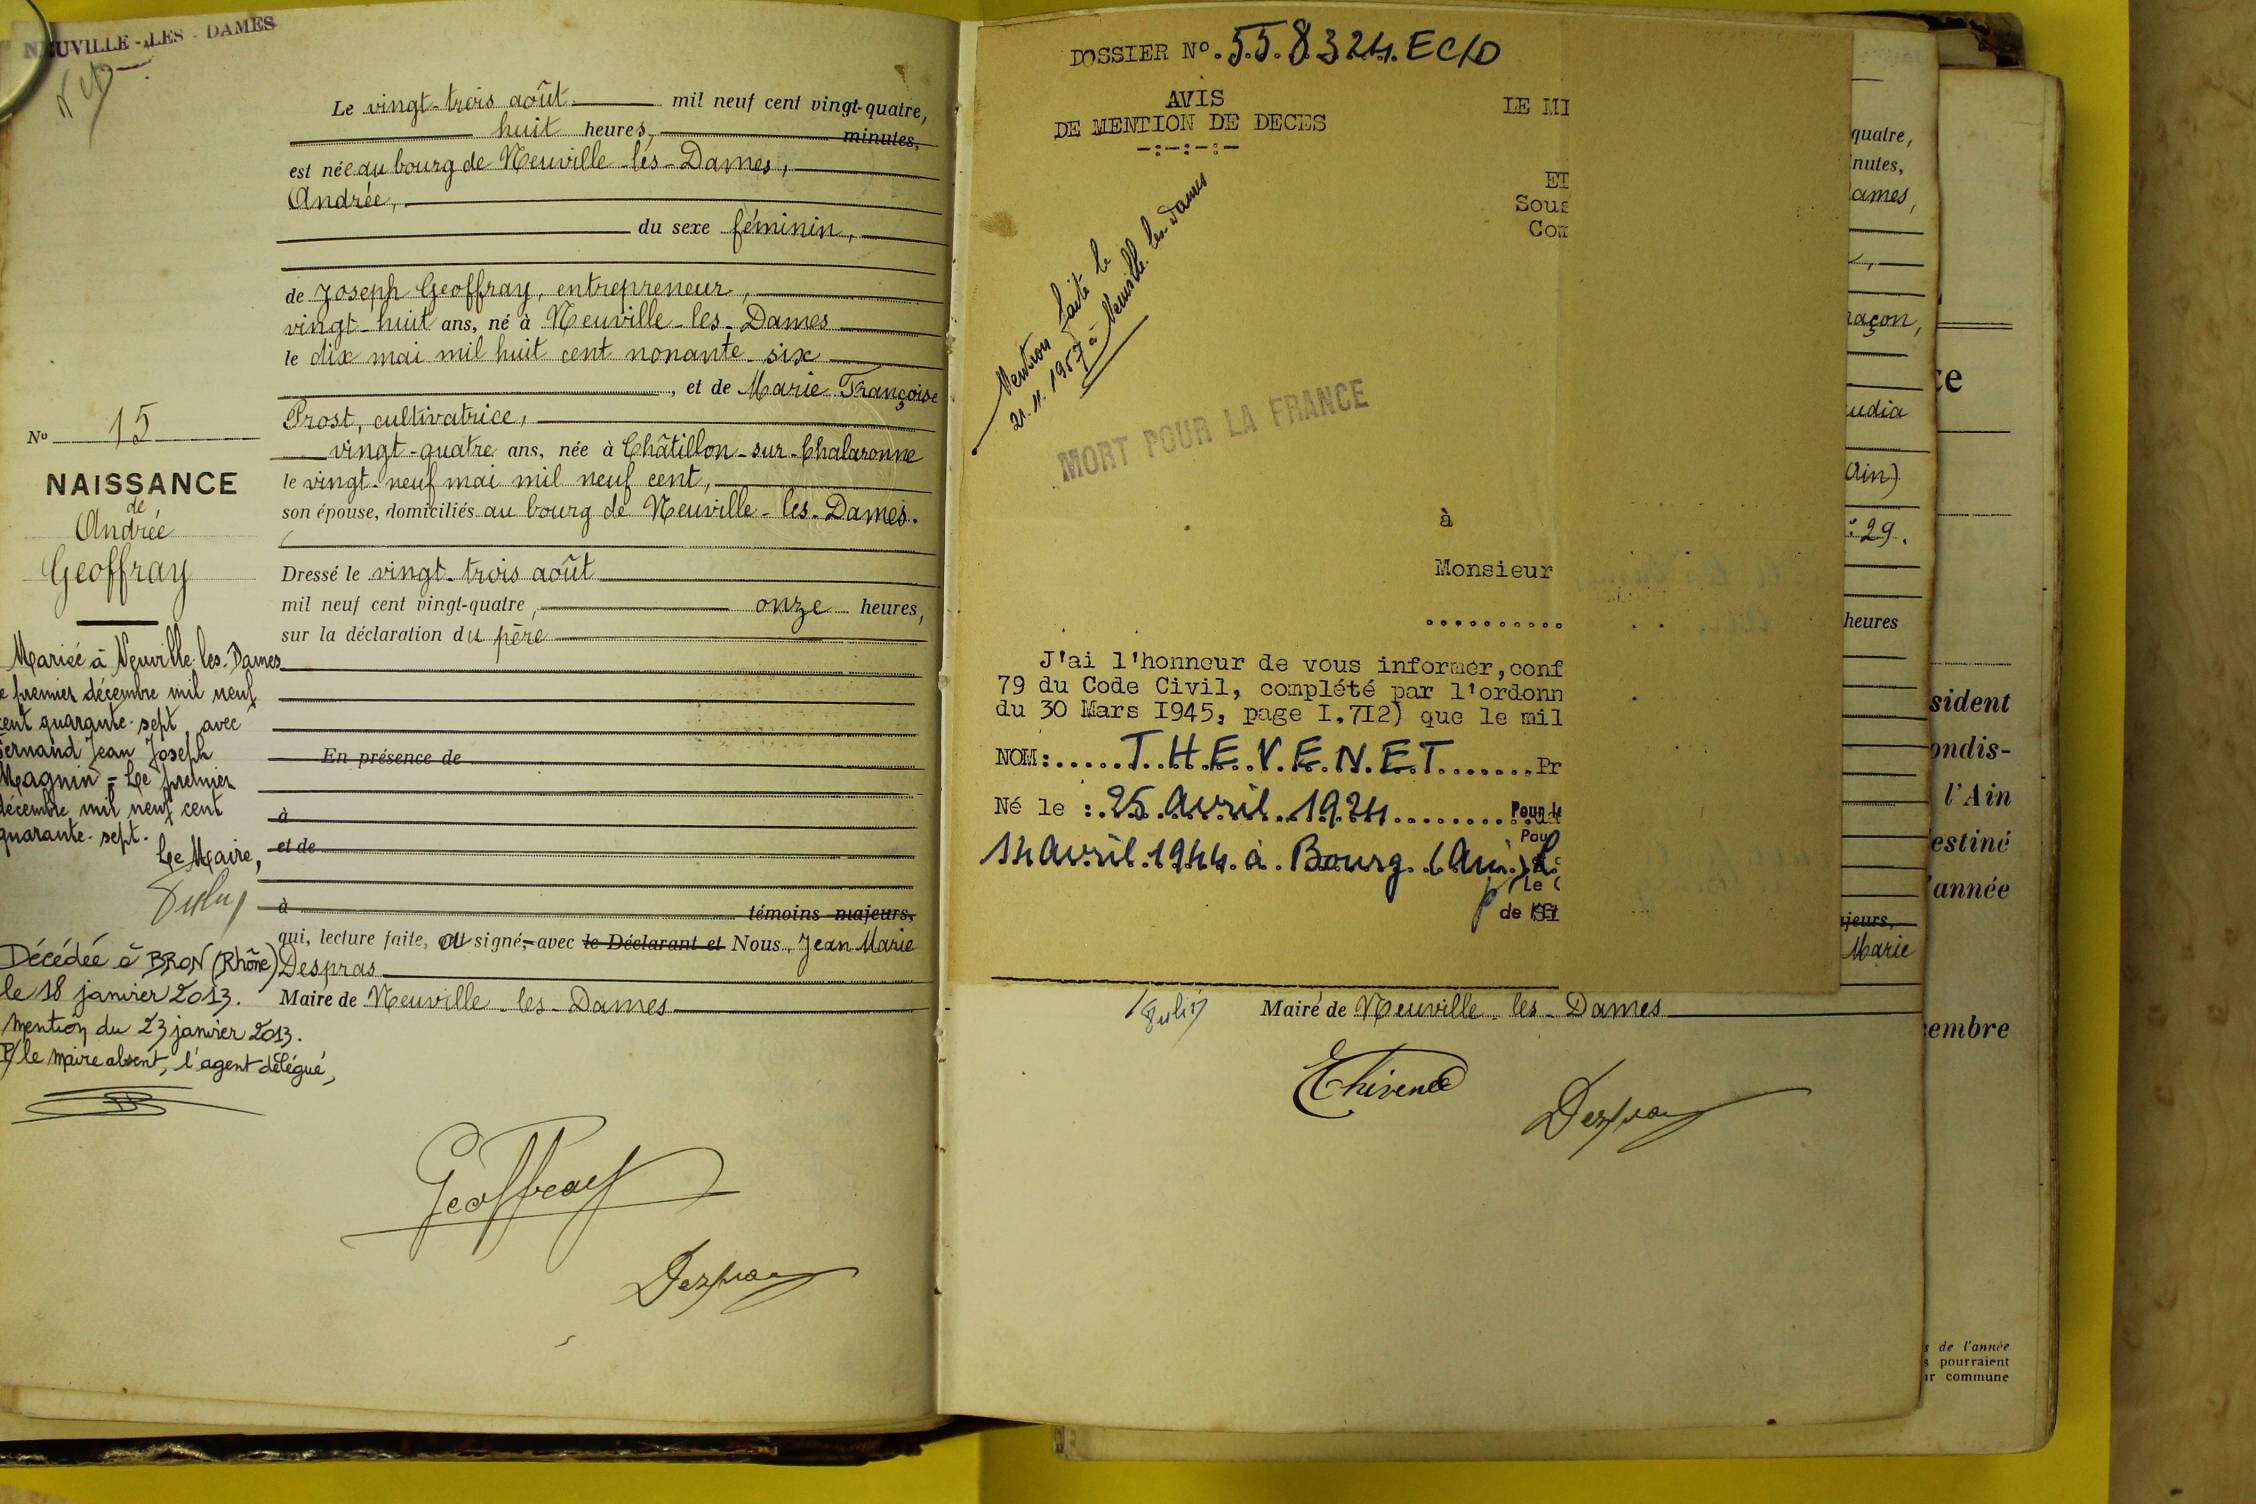 NEUVILLE-LES-DAMES
Le vingt-trois août mil neuf cent vingt-quatre,
huit heures, minutes,
est née au bourg de Neuville-les-Dames,
Andrée,
du sexe féminin,
de Joseph Geoffray, entrepreneur,
vingt-huit ans, né à Neuville-les-Dames
le dix mai mil huit cent nonante-six
, et de Marie Françoise
Prost, cultivatrice,
vingt-quatre ans, née à Châtillon-sur-Chalaronne
le vingt-neuf mai mil neuf cent,
son épouse, domiciliés au bourg de Neuville-les-Dames.
Dressé le vingt-trois août
mil neuf cent vingt-quatre, onze heures,
sur la déclaration du père
En présence de
à
et de
à témoins majeurs,
qui, lecture faite, ont signé, avec le Déclarant et Nous, Jean Marie
Despras
Maire de Neuville-les-Dames
Geoffray
Despras
No 15
NAISSANCE
de
Andrée
Geoffray
Mariée à Neuville-les-Dames
le premier décembre mil neuf
cent quarante-sept, avec
Fernand Jean Joseph
Magnin = Le premier
décembre mil neuf cent
quarante-sept.
Le Maire,
Décédée à BRON (Rhône)
le 18 janvier 2013.
Mention du 23 janvier 2013.
P/ le maire absent, l'agent délégué,
DOSSIER No. 558324. EC/D
AVIS
DE MENTION DE DECES
-:-:-:-
LE MI
ET
Sous
Com
Mention faite le
21.11.1957 à Neuville-les-Dames
MORT POUR LA FRANCE
à
Monsieur
J'ai l'honneur de vous informer, conf
79 du Code Civil, complété par l'ordonn
du 30 Mars 1945, page 1.712) que le mil
NOM:.....T.H.E.V.E.N.E.T.......Pr
Né le : 25 avril 1924
Pour le
Pour
14 avril 1944 à Bourg (Ain)
Le C
de l'Et
Maire de Neuville-les-Dames
Thévenet
Despras
quatre,
nutes,
ames,
maçon,
udia
Ain)
29.
heures
jeurs,
Marie
ce
sident
ondis-
l'Ain
estiné
l'année
embre
s de l'année
s pourraient
ur commune